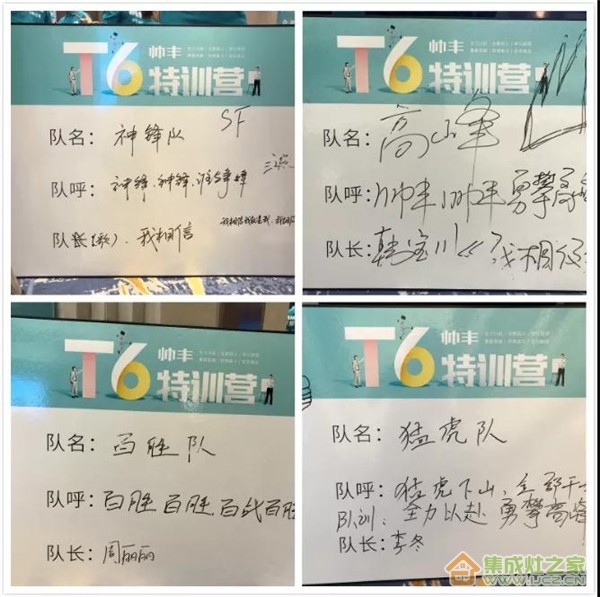 T6 帅丰
特训营
SF
队名：神锋队
队呼：神锋、神锋、谁与争锋
队长(歌)：我相信
T6 帅丰
特训营
队名：高峰
队呼：帅丰帅丰勇攀高
队长：韩宝川《我相信
T6 帅丰
特训营
队名：百胜队
队呼：百胜百胜百战百胜
队长：周丽丽
T6 帅丰
特训营
队名：猛虎队
队呼：猛虎下山，全部干
队训：全力以赴 勇攀高峰
队长：李冬
集成灶之家
www.jcz.com